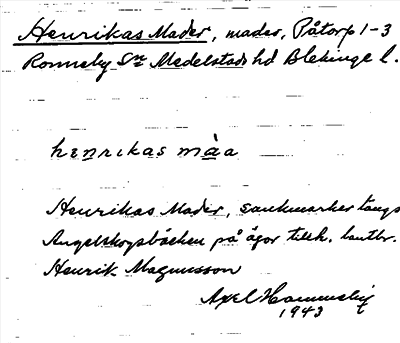 Henrikas Mader, mader, Påtorp 1-3
Ronneby Sn Medelstads hd Blekinge l.
henrikas màa
Henrikas Mader, sankmarker längs
Angelskogsbäcken på ägor tillh. lantbr.
Henrik Magnusson
Axel
1943